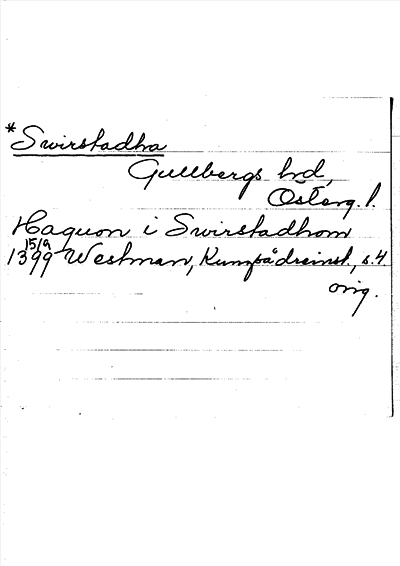 *Swirstadha
Gullbergs hd,
Österg. l.
Haquon i Swirstadhom
15/9
1399 Westman, Kungsådreinst, s. 4
orig.